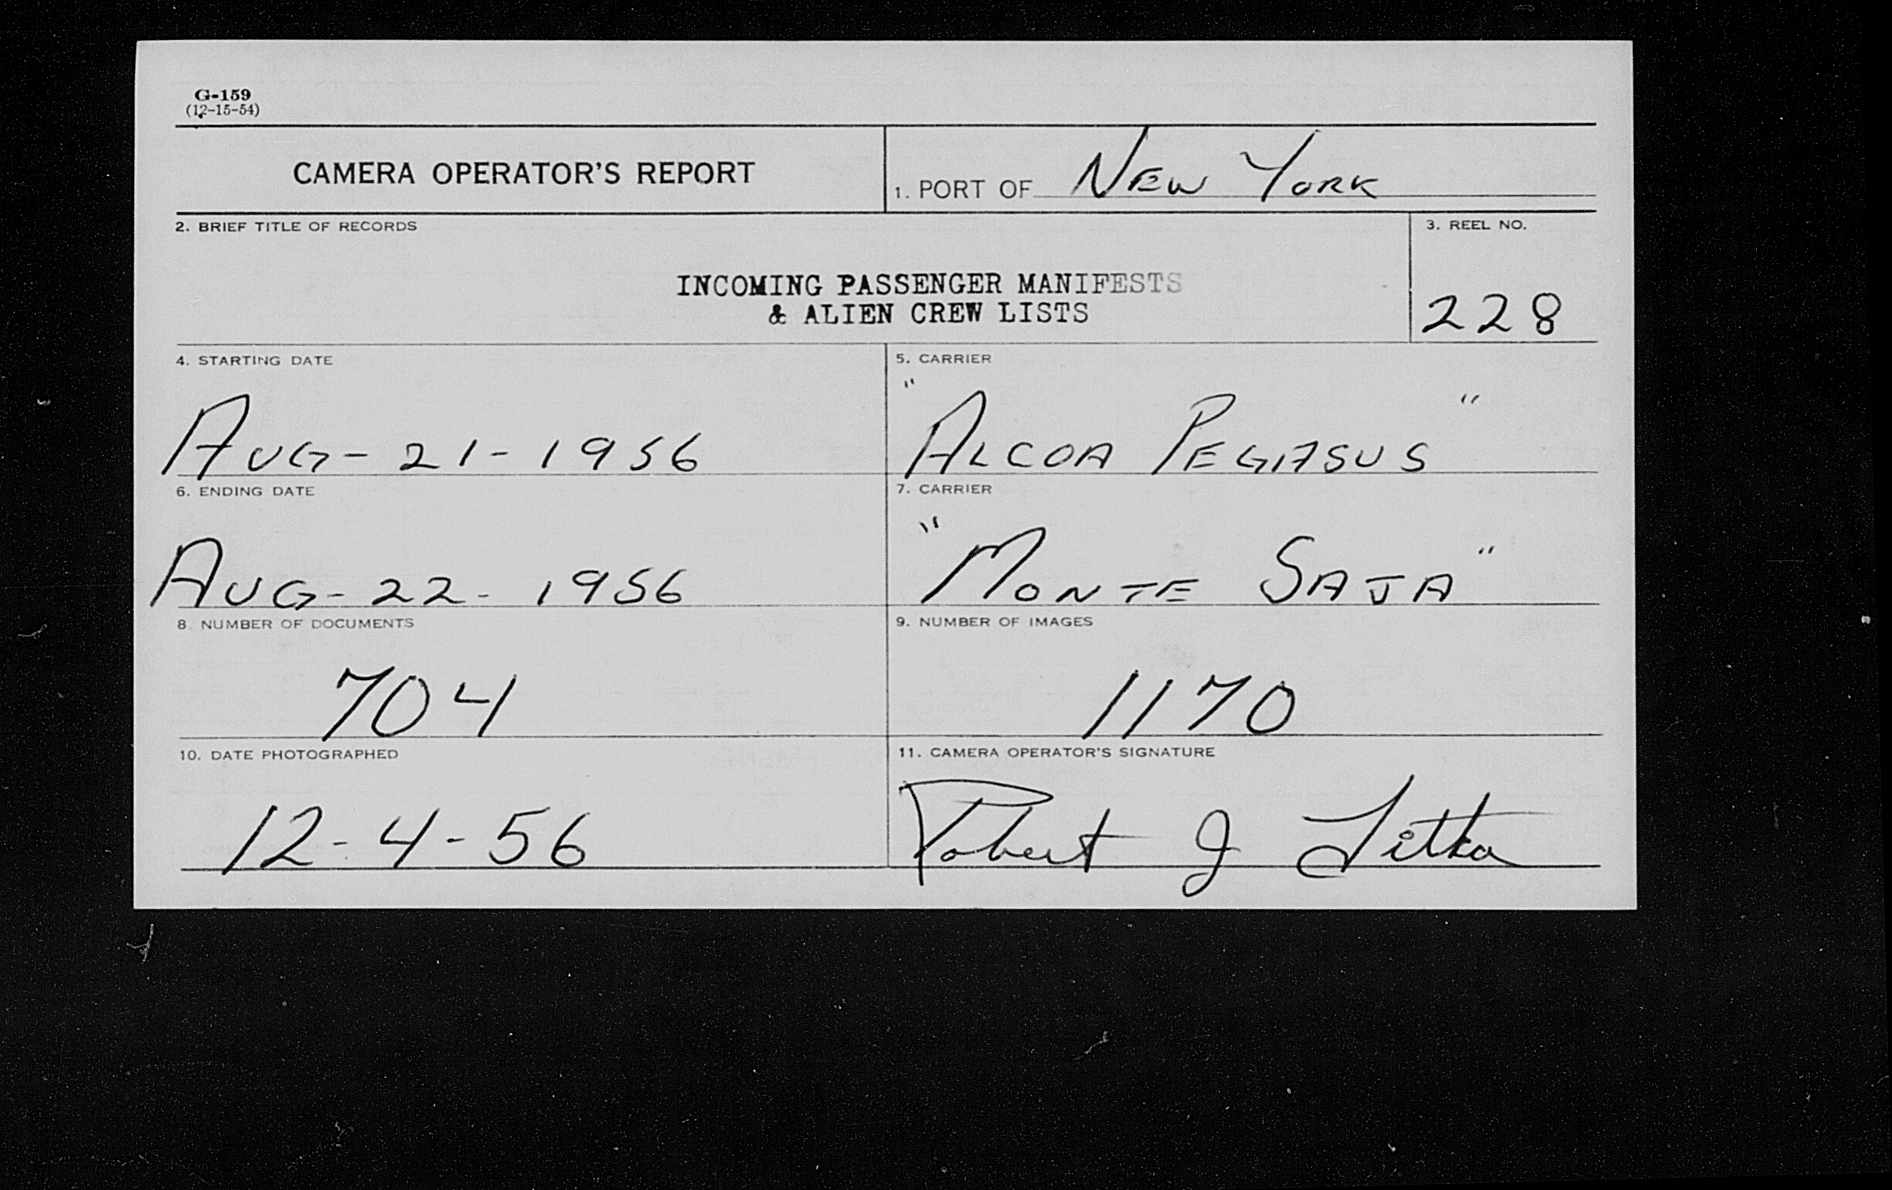 G-159
(12-15-54)
CAMERA OPERATOR'S REPORT
1. PORT OF NEW YORK
2. BRIEF TITLE OF RECORDS
INCOMING PASSENGER MANIFESTS
& ALIEN CREW LISTS
3. REEL NO.
228
4. STARTING DATE
AUG-21-1956
5. CARRIER
"ALCOA PEGASUS"
6. ENDING DATE
AUG-22-1956
7. CARRIER
"MONTE SAJA"
8. NUMBER OF DOCUMENTS
704
9. NUMBER OF IMAGES
1170
10. DATE PHOTOGRAPHED
12-4-56
11. CAMERA OPERATOR'S SIGNATURE
Robert J